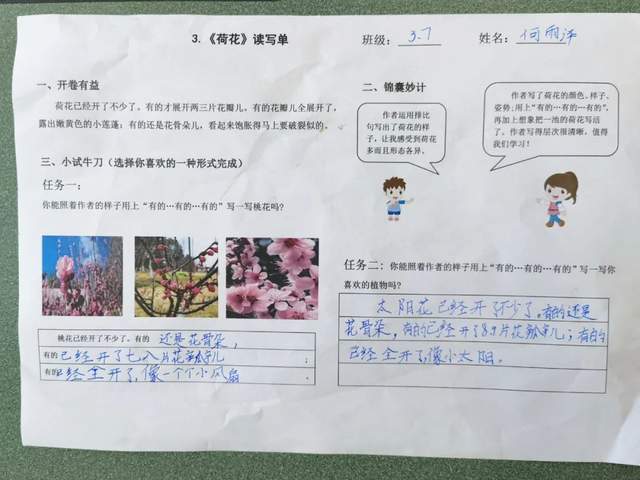 3.《荷花》读写单
班级: 3.7
姓名: 何雨
一、开卷有益
荷花已经开了不少了。有的才展开两三片花瓣儿，有的花瓣儿全展开了，
露出嫩黄色的小莲蓬；有的还是花骨朵儿，看起来饱胀得马上要破裂似的。
二、锦囊妙计
作者运用排比
句写出了荷花的样
子，让我感受到荷花
多而且形态各异。
作者写了荷花的颜色、样子、
姿势；用上“有的…有的…有的”，
再加上想象把一池的荷花写活
了。作者写得层次很清晰，值得
我们学习！
三、小试牛刀（选择你喜欢的一种形式完成）
任务一：
你能照着作者的样子用上“有的…有的…有的”写一写桃花吗？
桃花已经开了不少了。有的 还是花骨朵，
有的已经开了七八片花瓣儿；
有的已经全开了，像一个个小风扇。
任务二：你能照着作者的样子用上“有的…有的…有的”写一写你
喜欢的植物吗？
太阳花已经开了不少了。有的还是
花骨朵，有的已经开了8.9片花瓣儿；有的
已经全开了，像小太阳。